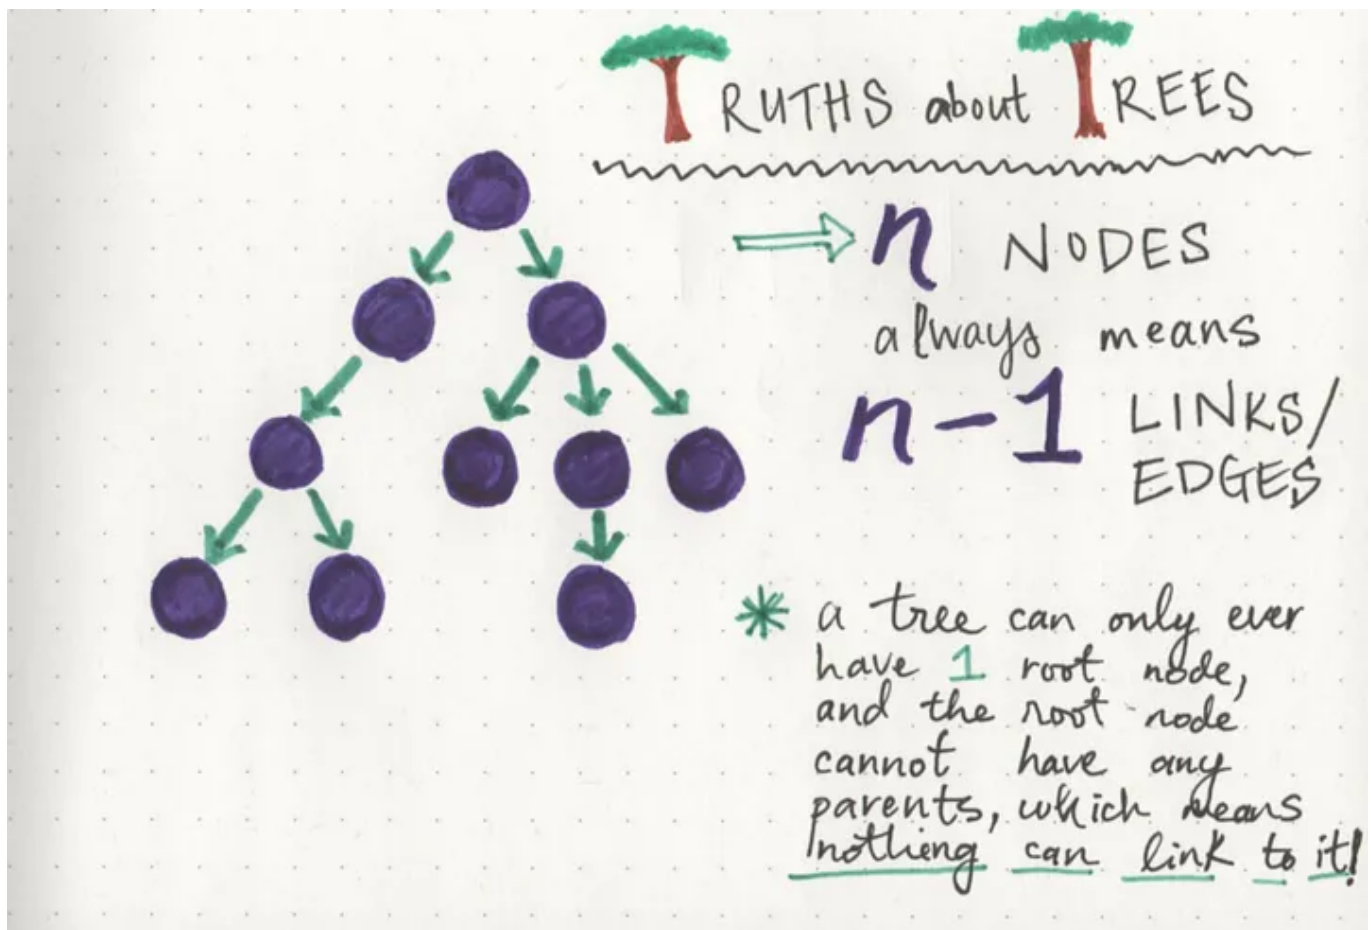 TRUTHS about TREES
n NODES
always means
n-1 LINKS/
EDGES
a tree can only ever
have 1 root node,
and the root node
cannot have any
parents, which means
nothing can link to it!